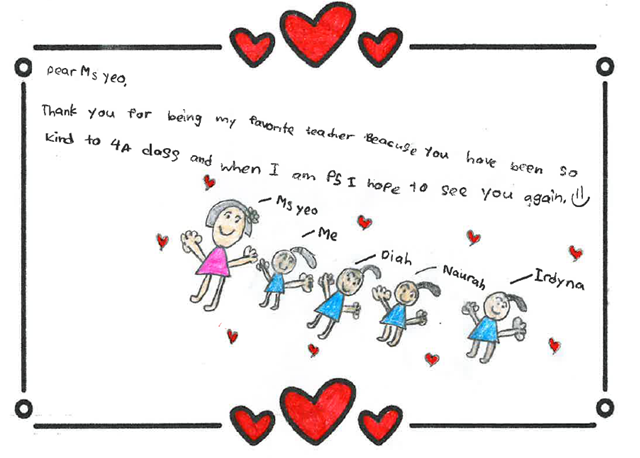 Dear Ms yeo,
Thank you for being my favorite teacher Beacuse You have been so
kind to 4A class and when I am P5 I hope to see you again.
Ms yeo
Me
Diah
Naurah
Irdyna